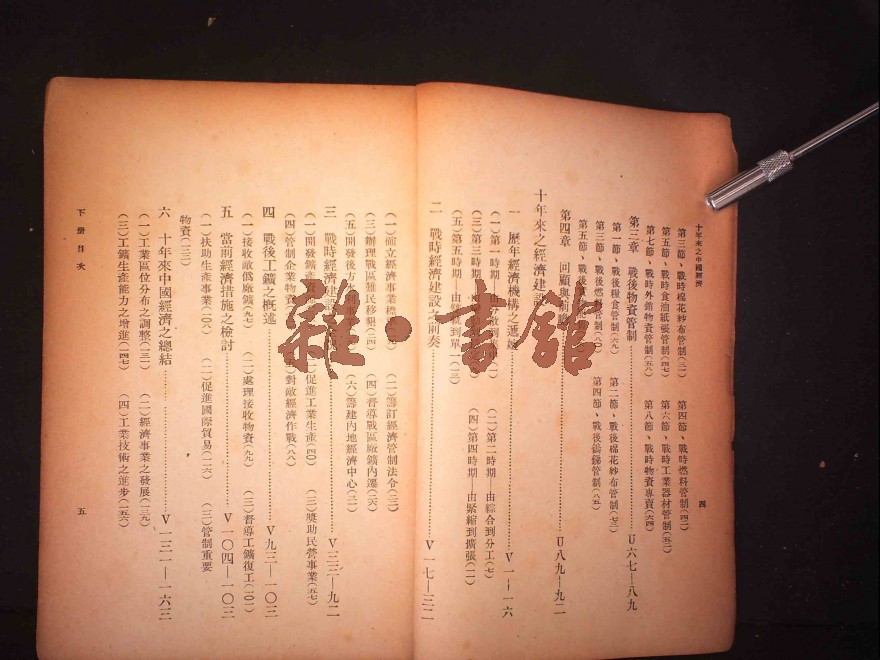 十年來之中國經濟
四
第三節、戰時棉花紗布管制(三二)　第四節、戰時燃料管制(四二)
第五節、戰時食油紙張管制(四七)　第六節、戰時工業器材管制(五三)
第七節、戰時外銷物資管制(五八)　第八節、戰時物資專賣(六四)
第三章　戰後物資管制………U六七—八九
第一節、戰後糧食管制(六九)　第二節、戰後棉花紗布管制(七三)
第三節、戰後燃料管制(八〇)　第四節、戰後鎢銻管制(八五)
第五節、戰後
第四章　回顧與前………U八九—九二
十年來之經濟建設
一　歷年經濟機構之遞………V一—一六
(一)第一時期　由分散到　(二)第二時期　由綜合到分工(七)
(三)第三時期　(四)第四時期—由緊縮到擴張(二)
(五)第五時期—由　到單一(三)
二　戰時經濟建設之前奏………V一七—三二
(一)確立經濟事業機　(二)籌訂經濟管制法令(三)
(三)辦理戰區難民移墾(二四)　(四)督導戰區廠鑛內遷(二六)
(五)開發後方　(六)籌建內地經濟中心(三一)
三　戰時經濟建設………V三三—九二
(一)開發鑛產資　促進工業生產(四〇)　(三)獎助民營事業(五七)
(四)管制企業物資　對敵經濟作戰(八八)
四　戰後工鑛之概述………V九三—一〇三
(一)接收敵偽廠鑛(九七)　(二)處理接收物資(九九)　(三)督導工鑛復工(一〇一)
五　當前經濟措施之檢討………V一〇四—一〇三
(一)扶助生產事業(一〇六)　(二)促進國際貿易(一一六)　(三)管制重要
物資(一二三)
六　十年來中國經濟之總結………V一三一—一六三
(一)工業區位分布之調整(一三一)　(二)經濟事業之發展(一三九)
(三)工鑛生產能力之增進(一四七)　(四)工業技術之進步(一五六)
下册目次
五
雜·書館